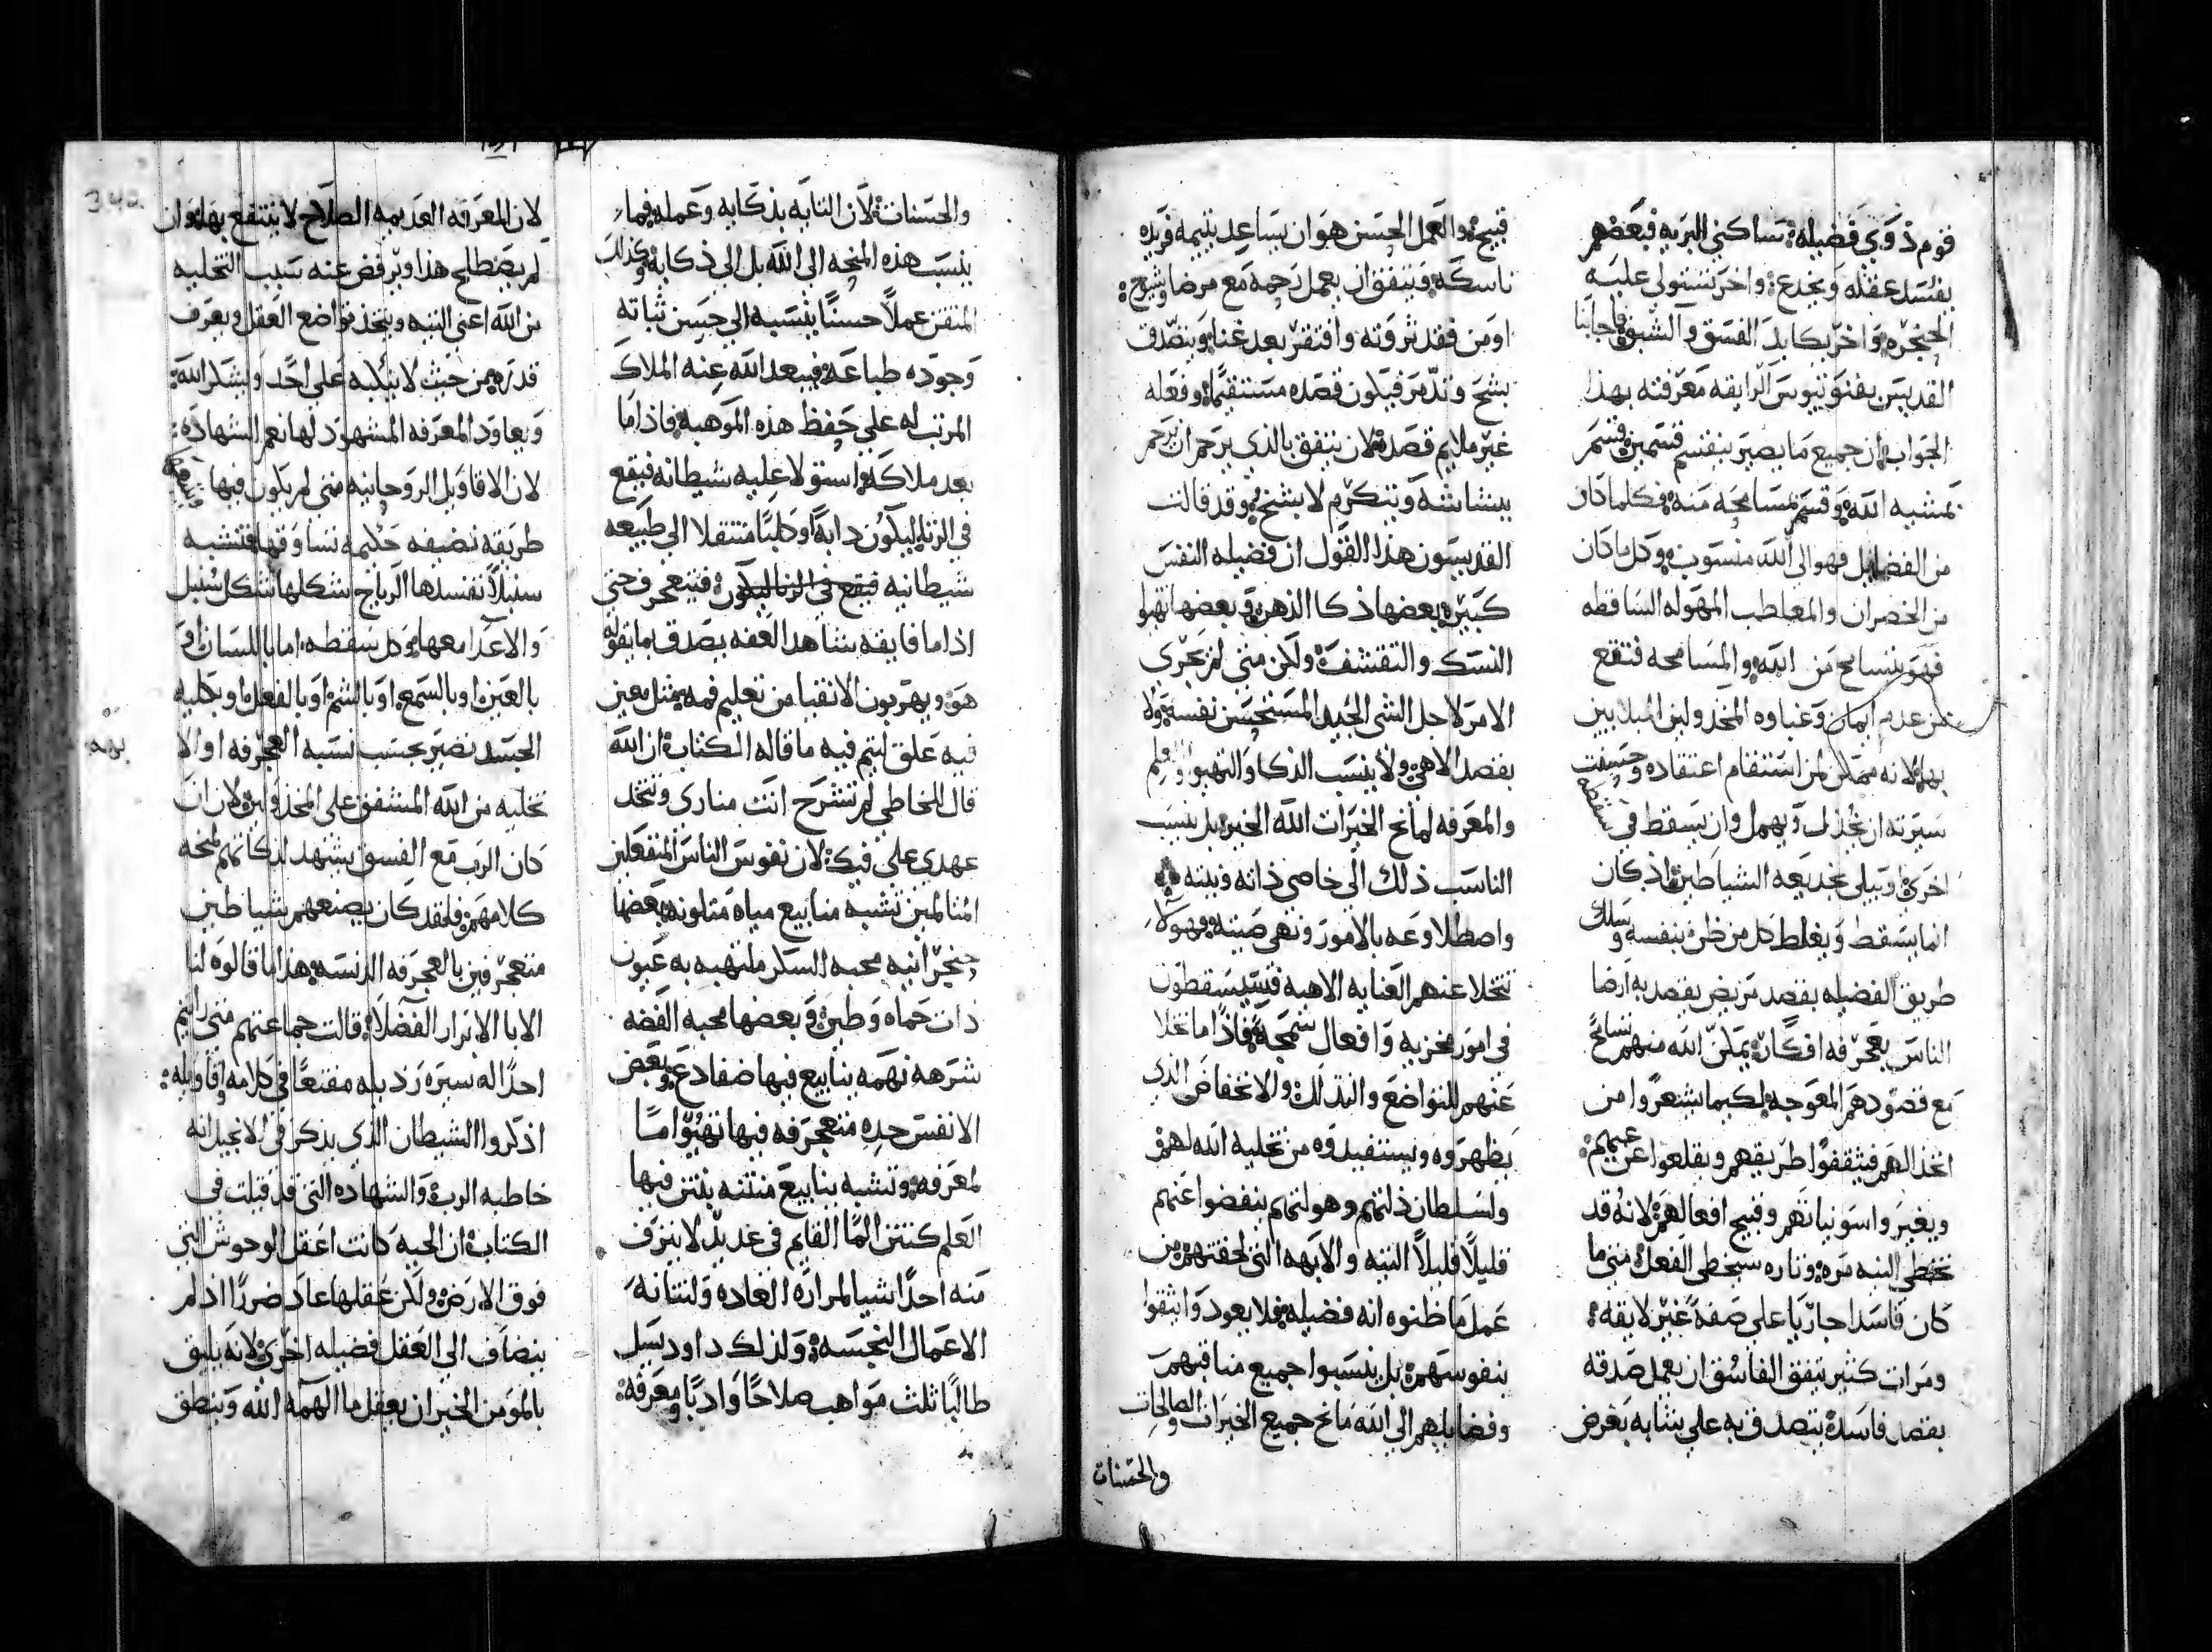 قوم ذوي فضيله تساكني البريه فبعضهم
يفتسد عقله ويخدع واخر تستولي عليه
الحنجره واخر يكابد الفسق والشبق فاجابنا
القديسين يفنوتيوس الرايقه معرفته بهذا
الجواب ان جميع ما يصير ينقسم قسمين قسم
بمشيه الله وقسم بمسامحه منه فكلما كان
من الفضايل فهو الى الله منسوب وكل ما كان
من الخسران والمعاطب المهوله الساقطه
فهو يتسامح من الله والمسامحه فتقع
من عدم ايمان وغباوه المخذولين المبلايين
بها لانه ممكن لمن استقام اعتقاده وحسنت
سيرته ان يخذل ويهمل وان يسقط في سقطه
اخرى او يبلي بخديعه الشياطين اذ كان
انما يسقط ويغلط كل من ظن بنفسه وسلك
طريق الفضيله بقصد مريض يقصد به ارضا
الناس بعجرفه افكاره يمكن الله منهم تسامح
مع قصودهم المعوجه لكيما يشعروا من
اتخذالهم فيثقفوا طريقهم ويقلعوا عن غيهم
ويغيروا سو نياتهم وقبيح افعالهم لانه قد
تخطي النيه مره وتاره يخطي الفعل متي ما
كان فاسدا جاريا على صفه غير لايقه
ومرات كثير يتفق الفاسق ان يعمل صدقه
بقصد فاسده يتصدق به علي شابه بغرض
قبيح والعمل الحسن هو ان يساعد يتيمه فريده
ناسكه ويتفق ان يعمل رحمه مع مرضا وشيوخ
او من فقد ثروته وافتقر بعد غناه ويتصدق
بشح وتذمر فيكون قصده مستقيما وفعله
غير ملايم قصده لان يتفق بالذي يرحم ان يرحم
ببشاشه وتكرم لا بشح وقد قالت
القديسون هذا القول ان فضيله النفس
كبيره بعضها ذكا الذهن وبعضها تهيوا
النسك والتقشف ولكن متي لم يجرى
الامر لاجل الشي الجيد المستحسن نفسه ولا
بقصد الاهي ولا ينسب الذكا والتهيو والعلم
والمعرفه لمانح الخيرات الله الخير بل ينسب
الناسب ذلك الى خاصي ذاته ونيته
واصطلاوعه بالامور ونهي صيته فهولا
تتخلا عنهم العنايه الاهيه فتيتد يسقطون
في امور مخزيه وافعال سمجه فاذا ما تخلا
عنهم للتواضع والتذلل والانخفاض الذي
يظهروه ويستفيدوه من تخليه الله لهم
ولسلطان ذلتهم وهولتهم ينفضوا عنهم
قليلًا قليلًا التيه والابهه التي لحقتهم من
عمل ما ظنوه انه فضيله فلا يعود وا يثقوا
بنفوسهم بل ينسبوا جميع مناقبهم
وفضايلهم الي الله مانح جميع الخيرات والصالحات
والحسنات
والحسنات لان التايه بذكايه وعمله فما
ينسب هذه المنحه الى الله بل الي ذكايه وكذلك
المتقن عملًا حسنًا ينسبه الي حسن ثباته
وجوده طباعه فيبعد الله عنه الملاك
المرتب له علي حفظ هذه الموهبه فاذا ما
بعد ملاكه واستولا عليه شيطانه فيقع
في الزنا ليكون دابه او كلبًا منتقلا الي طبيعه
شيطانيه فيقع في الزنا ليكون فيتعجرف حتي
اذا ما فايقه يشاهد العفه يصدق بما يقوله
هو ويهربون الاتقيا من تعليم فمه بمثل معين
فيه علق ليتم فيه ما قاله الكتاب ان الله
قال للخاطي لم تشرح انت مناري وتتخد
عهدي علي فيك لان نفوس الناس المنفعلين
المتالمين تشبه منابيع مياه متلونه بعضها
حنجرانيه محبه السكر ملتهبه به عيون
ذات حماه وطين وبعضها محبه الفضه
شرهه نهمه ينابيع فيها ضفادع وبعض
الانفس حده متعجرفه فيها تهيوا ما
لمعرفه وتشبه ينابيع منتنه ينتن فيها
العلم كنتن الما القايم في غدير لا ينزف
منه احدًا شيا لمراره العاده ولنتانه
الاعمال النجسه ولذلك داود يسل
طالبًا ثلث مواهب صلاحًا وادبًا ومعرفه
لان المعرفه العديمه الصلاح لا ينتفع بها وان
لم يصطلح هذا ويرفض عنه سبب التخليه
من الله اعني التيه ويتخذ تواضع العقل ويعرف
قدره من حيث لا يتكبه علي احد ويشكر الله
ويعاود المعرفه المشهود لها نعم الشهاده
لان الاقاويل الروحانيه متي لم يكون فيها
طريقه نضيفه حكيمه تساوقها فتشبه
سنبلاً تفسدها الرياح شكلها شكل سنبل
والاعدا معها وكل سقطه اما باللسان او
بالعين او بالسمع او بالشم او بالفعل او بكليه
الجسد تصير بحسب نسبه العجرفه او الا
تخليه من الله المشفق علي المخذولين لان ان
كان الرب مع الفسق يشهد لذكايهم لمنحه
كلامهم فلقد كان يصنعهم شياطين
متعجرفين بالعجرفه الدنسه هذا ما قالوه لنا
الابا الابرار الفضلاء قالت جماعتهم متي رايتم
احدًا له سيره رديله مقنعًا في كلامه واقاويله
اذكروا الشيطان الذي يذكر في الانجيل انه
خاطبه الرب والشهاده التي قد قيلت في
الكتاب ان الحيه كانت اعقل الوحوش التي
فوق الارض ولكن عقلها عاد ضررًا اذ لم
ينضاف الي العقل فضيله اخرى لانه يليق
بالمومن الخير ان يعقل ما الهمه الله وينطق